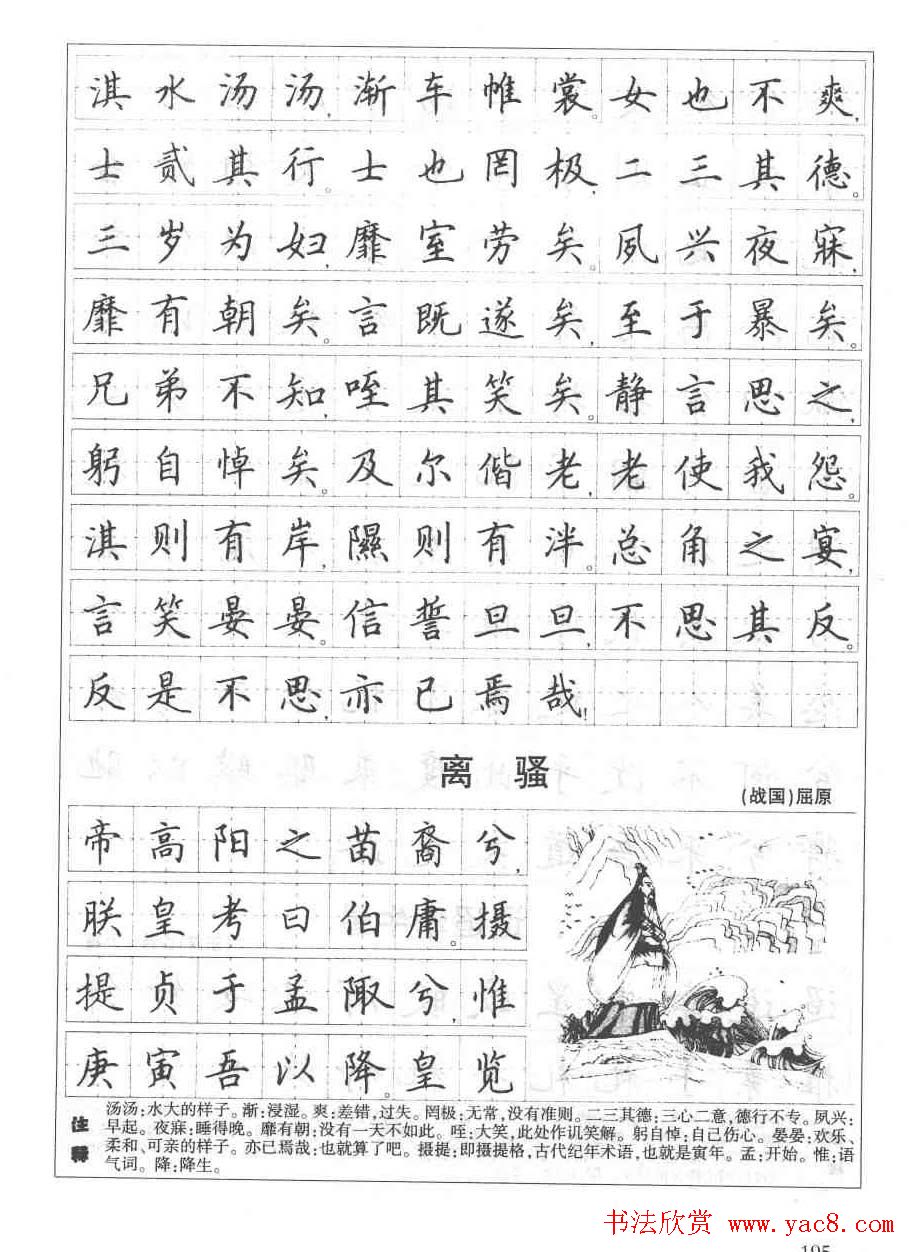 淇水汤汤,渐车帷裳。女也不爽,
士贰其行。士也罔极,二三其德。
三岁为妇,靡室劳矣。夙兴夜寐,
靡有朝矣。言既遂矣,至于暴矣。
兄弟不知,咥其笑矣。静言思之,
躬自悼矣。及尔偕老,老使我怨。
淇则有岸,隰则有泮。总角之宴,
言笑晏晏。信誓旦旦,不思其反。
反是不思,亦已焉哉!
离 骚
(战国)屈原
帝高阳之苗裔兮,
朕皇考曰伯庸。摄
提贞于孟陬兮,惟
庚寅吾以降。皇览
注释
汤汤:水大的样子。渐:浸湿。爽:差错,过失。罔极:无常,没有准则。二三其德:三心二意,德行不专。夙兴:
早起。夜寐:睡得晚。靡有朝:没有一天不如此。咥:大笑,此处作讥笑解。躬自悼:自己伤心。晏晏:欢乐、
柔和、可亲的样子。亦已焉哉:也就算了吧。摄提:即摄提格,古代纪年术语,也就是寅年。孟:开始。惟:语
气词。降:降生。
书法欣赏 www.yac8.com
105